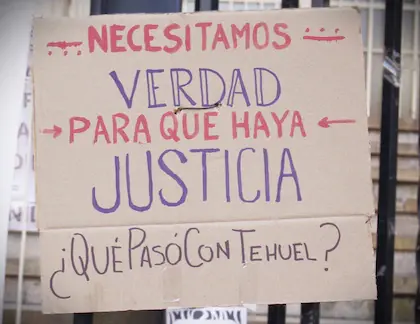 NECESITAMOS
VERDAD
→ PARA QUE HAYA ←
JUSTICIA
¿QUÉ PASÓ CON TEHUEL?